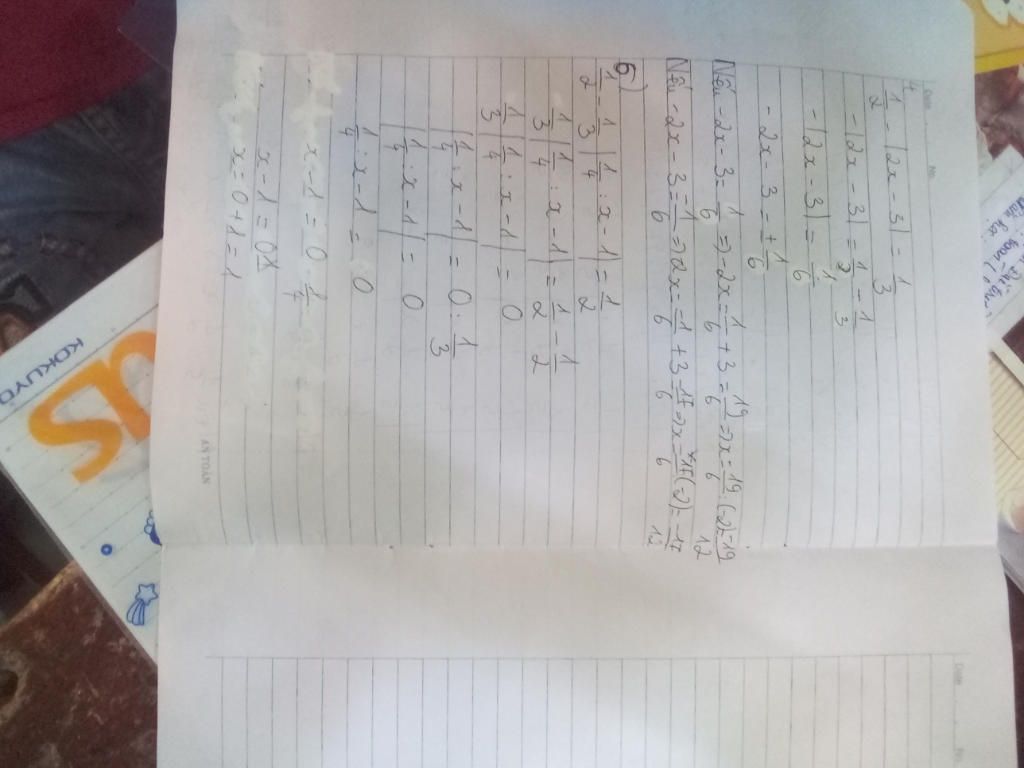 Date No.
4
1/2 - |2x - 3| = 1/3
-|2x - 3| = 1/2 - 1/3
-|2x - 3| = 1/6
-2x - 3 = ±1/6
Nếu -2x - 3 = 1/6 => -2x = 1/6 + 3 = 19/6 => x = 19/6 : (-2) = -19/12
Nếu -2x - 3 = -1/6 => 2x = -1/6 + 3 = 17/6 => x = 17/6 (-2) = -17/12
6)
1/2 - 1/3 |1/4 : x - 1| = 1/2
1/3 |1/4 : x - 1| = 1/2 - 1/2
1/3 |1/4 : x - 1| = 0
|1/4 : x - 1| = 0 : 1/3
|1/4 : x - 1| = 0
1/4 : x - 1 = 0
x - 1 = 0 - 1/4
x - 1 = 0
x = 0 + 1 = 1
AN TOÀN
Date No.
KOKUYO